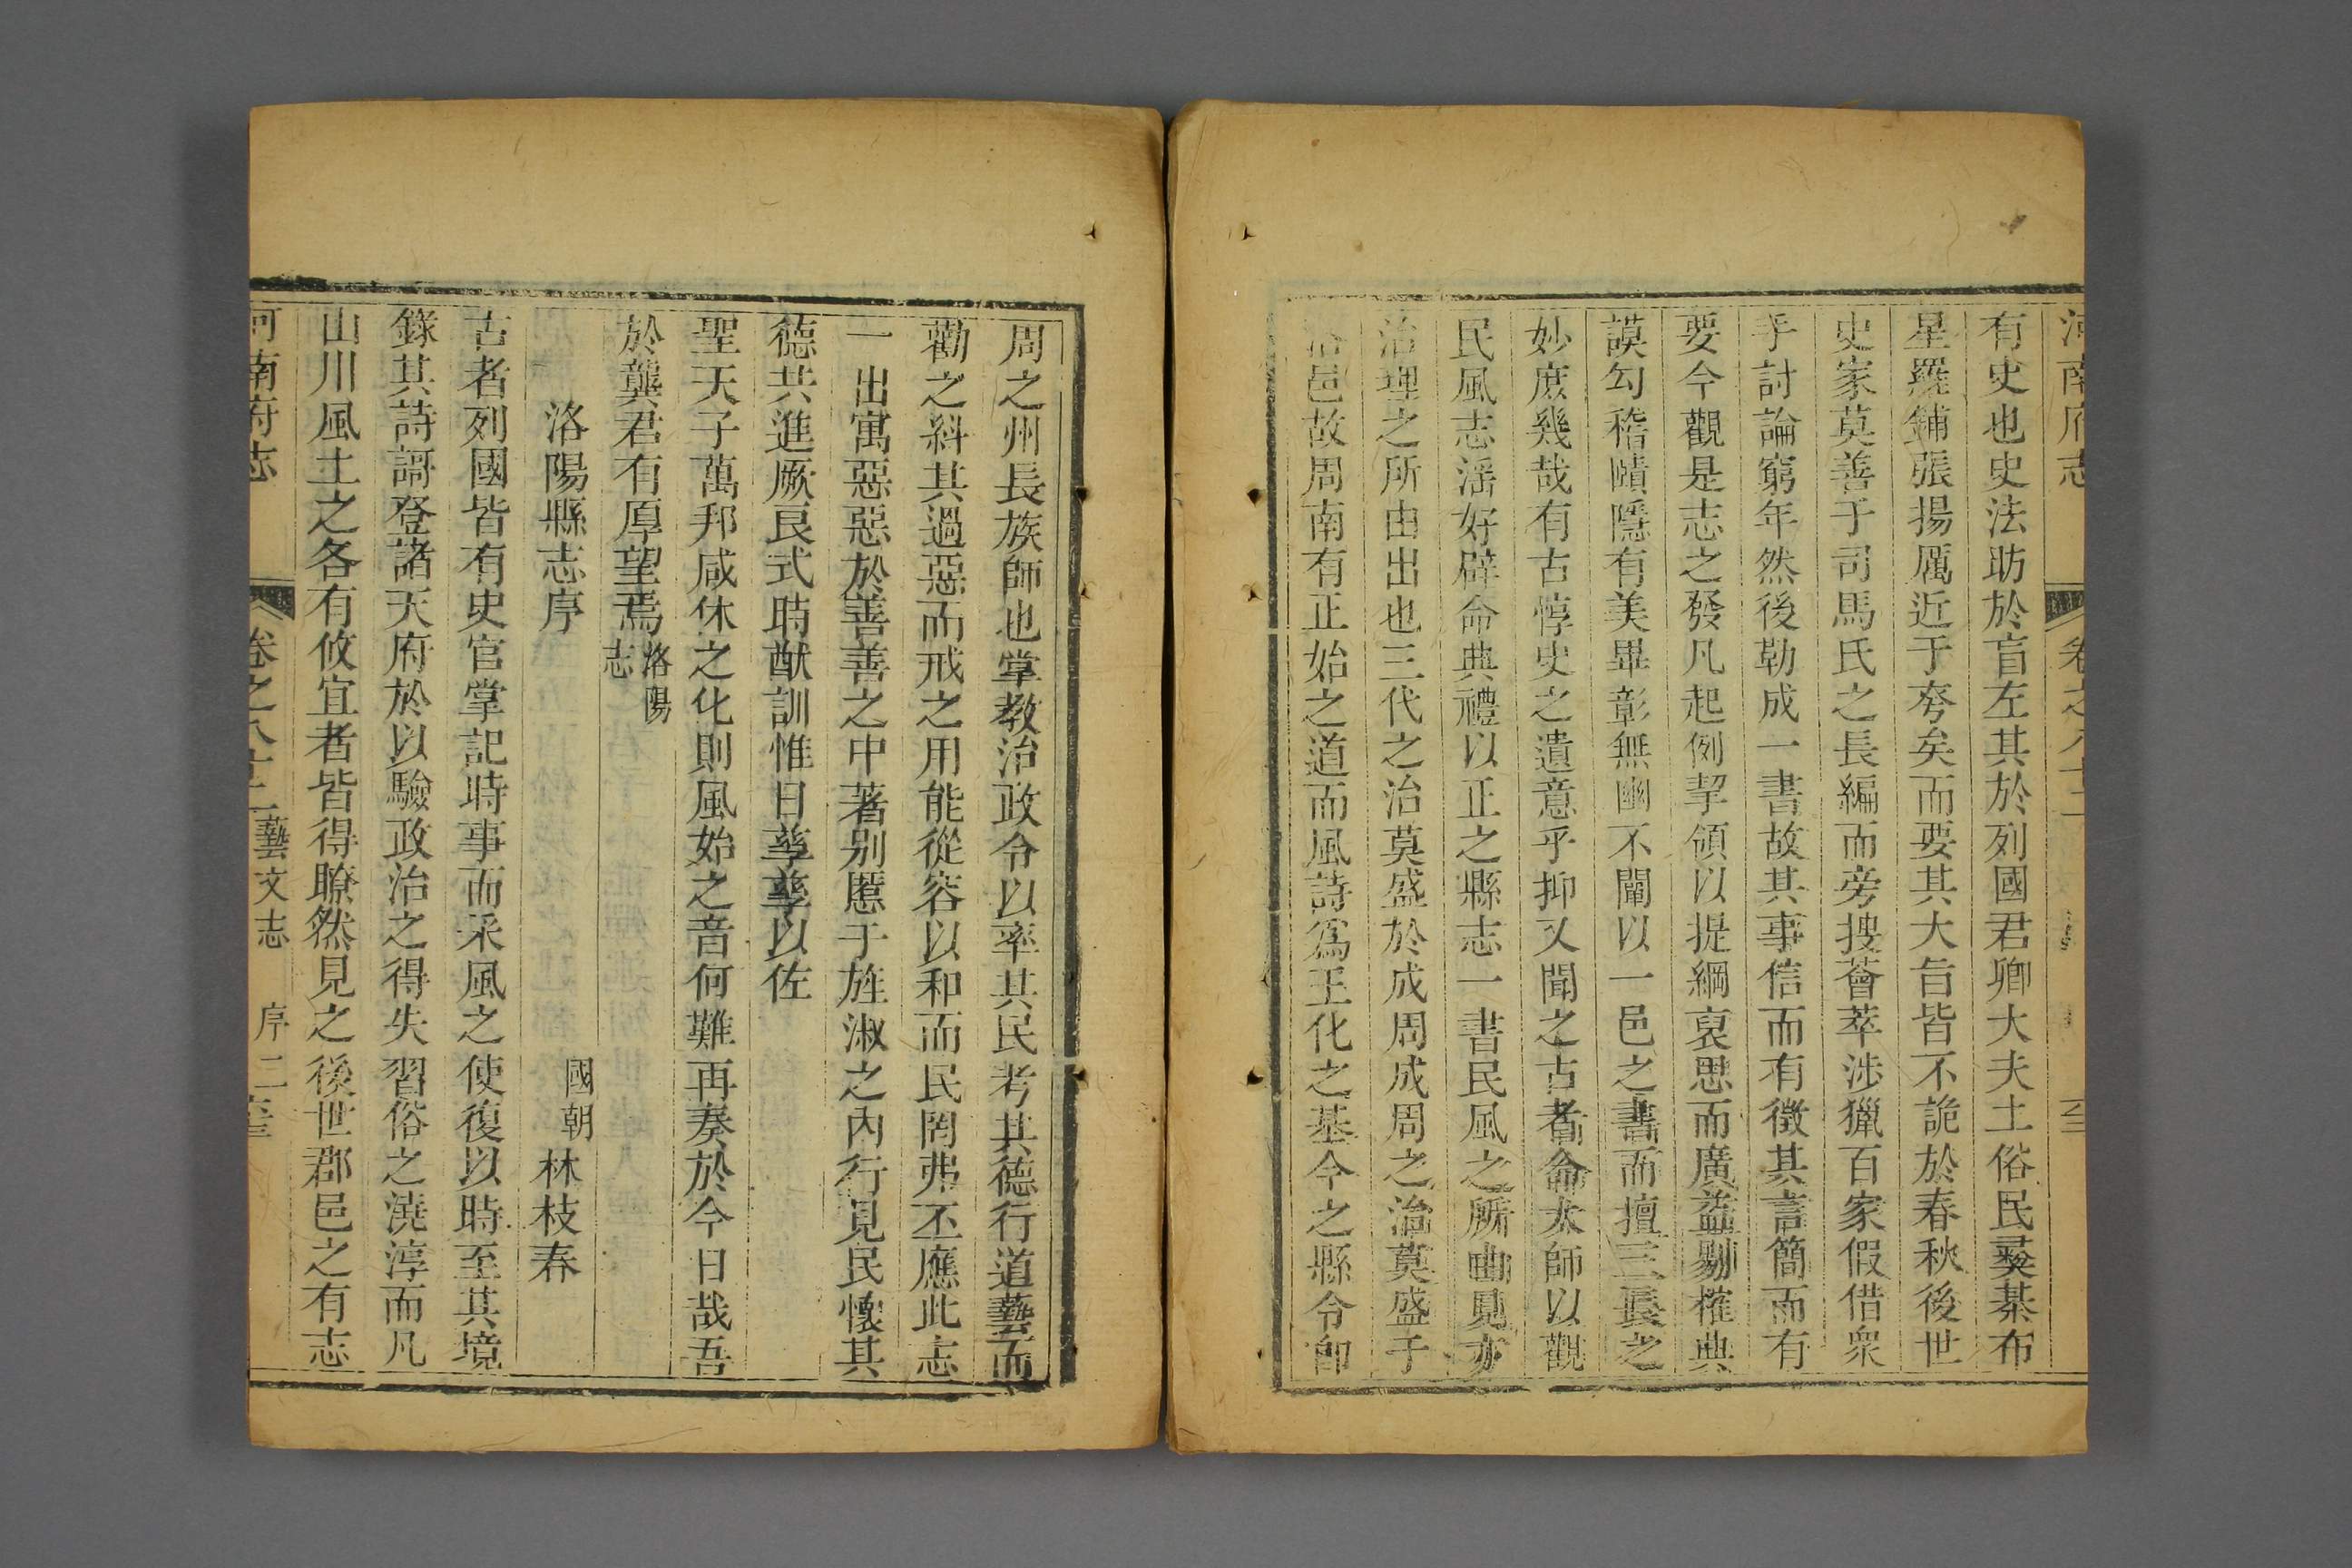 河南府志 卷之八十二
有史也史法昉於盲左其於列國君卿大夫土俗民彞綦布
星羅鋪張揚厲近于夸矣而要其大旨皆不詭於春秋後世
史家莫善于司馬氏之長編而旁搜薈萃涉獵百家假借衆
手討論窮年然後勒成一書故其事信而有徵其言簡而有
要今觀是志之發凡起例挈領以提綱裒思而廣益剔榷典
謨勾稽賾隱有美畢彰無幽不闡以一邑之書而擅三長之
妙庶幾哉有古惇史之遺意乎抑又聞之古者命太師以觀
民風志淫好辟命典禮以正之縣志一書民風之所由見亦
治理之所由出也三代之治莫盛於成周成周之治莫盛于
洛邑故周南有正始之道而風詩爲王化之基今之縣令即
周之州長族師也掌教治政令以率其民考其德行道藝而
勸之糾其過惡而戒之用能從容以和而民罔弗丕應此志
一出寓惡惡於善善之中著别慝于旌淑之內行見民懷其
德共進厥良式時猷訓惟日孳孳以佐
聖天子萬邦咸休之化則風始之音何難再奏於今日哉吾
於龔君有厚望焉 洛陽志
洛陽縣志序 國朝 林枝春
古者列國皆有史官掌記時事而采風之使復以時至其境
錄其詩謌登諸天府於以驗政治之得失習俗之澆淳而凡
山川風土之各有攸宜者皆得瞭然見之後世郡邑之有志
河南府志 卷之八十二 藝文志 序二